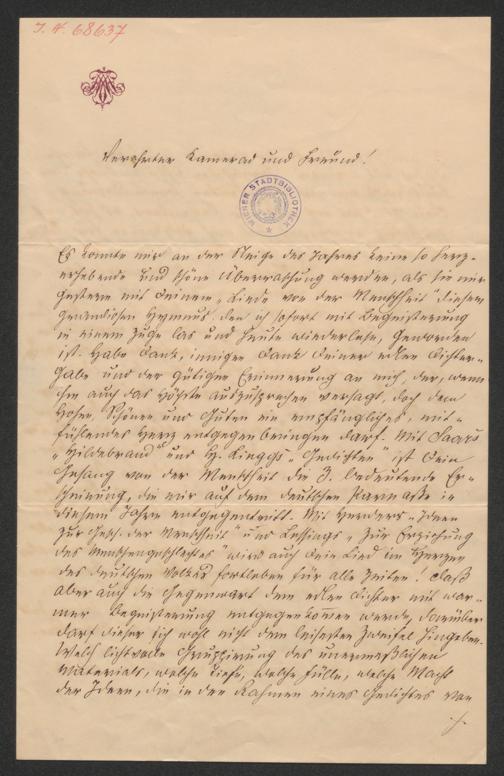 I. N. 68637
Verehrter Kamerad und Freund!
WIENER STADTBIBLIOTHEK
Es konnte mir an der Neige des Jahres keine so herz-
erhebende und schöne Überraschung werden, als sie mir
gestern mit Deinem „Liede von der Menschheit" diesem
grandiosen Hymnus, den ich sofort mit Begeisterung
in einem Zuge las und heute wiederlese, geworden
ist. Habe Dank, innigen Dank Deiner edlen Dichter-
gabe und der gütigen Erinnerung an mich, der, wenn
ihm auch das Höchste auszusprechen versagt, doch dem
Hohen, Schönen und Guten ein empfängliches, mit-
fühlendes Herz entgegenbringen darf. Mit Saars
„Hildebrand" und H. Linggs „Gedichten" ist Dein
Gesang von der Menschheit die 3. bedeutende Er-
scheinung, die mir auf dem deutschen Parnasse in
diesem Jahre entgegentritt. Mit Herders „Ideen
zur Gesch. der Menschheit" und Lessings „Zur Erziehung
des Menschengeschlechtes" wird auch Dein Lied im Herzen
des deutschen Volkes fortleben für alle Zeiten! Daß
aber auch die Gegenwart dem edlen Dichter mit war-
mer Begeisterung entgegenkommen werde, darüber
darf dieser sich wohl nicht dem leisesten Zweifel hingeben.
Welch lichtvolle Gruppirung des unermeßlichen
Materials, welche Tiefe, welche Fülle, welche Macht
der Ideen, die in den Rahmen eines Gedichtes von